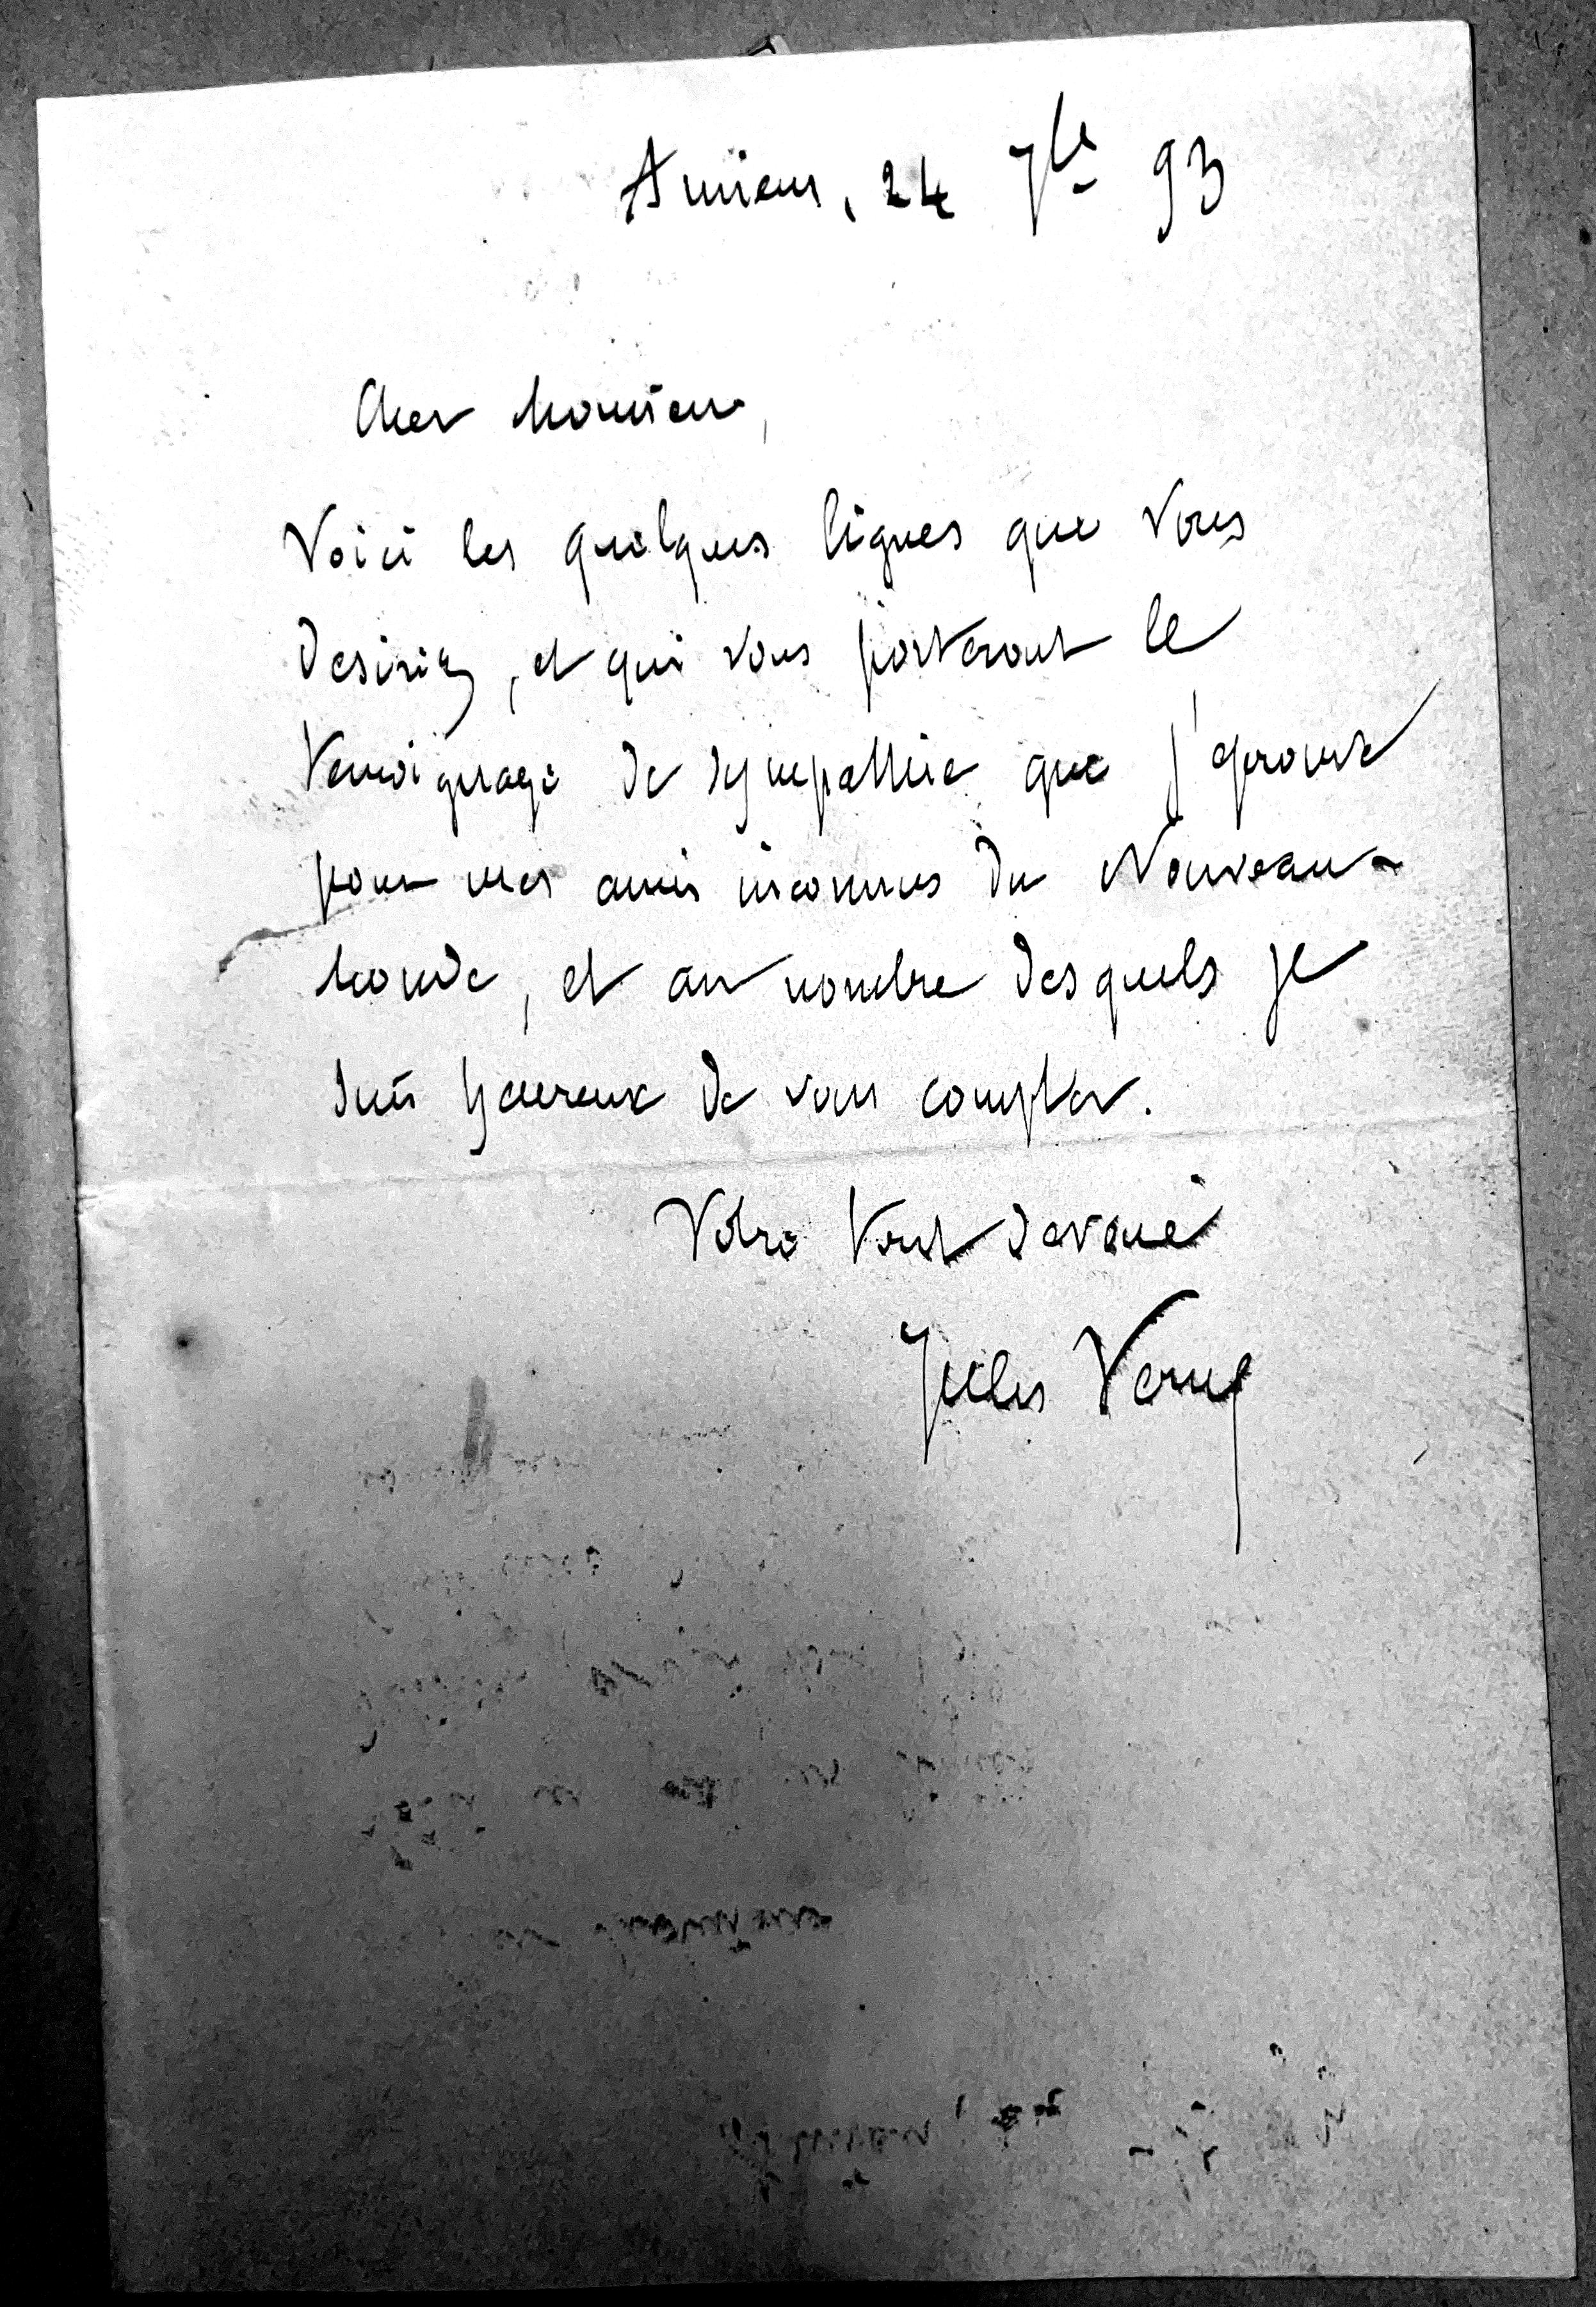 Amiens, 24 7bre 93
Cher Monsieur,
Voici les quelques lignes que vous
desiriez, et qui vous porteront le
temoignage de sympathie que j'eprouve
pour mes amis inconnus du Nouveau-
Monde, et au nombre desquels je
suis heureux de vous compter.
Votre tout devoué
Jules Verne